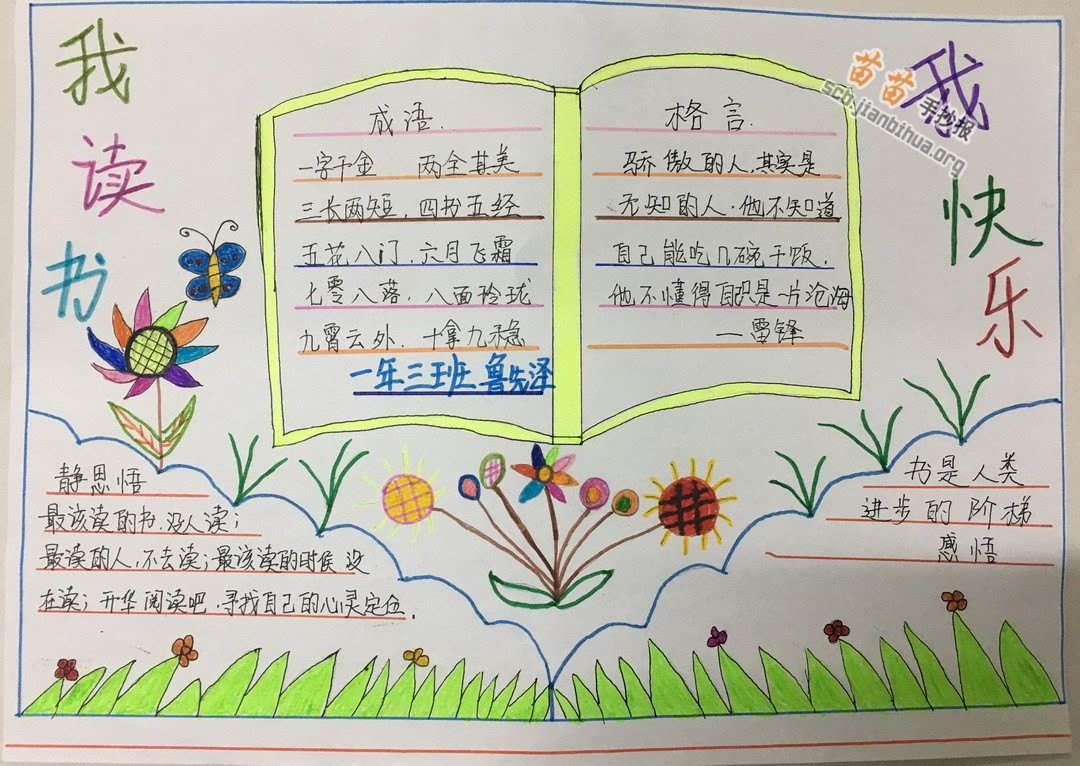 我读书
我快乐
苗苗手抄报
scb.jianbihua.org
成语.
一字千金 两全其美
三长两短.四书五经
五花八门.六月飞霜
七零八落.八面玲珑
九霄云外.十拿九稳
一年三班 鲁先泽
格言.
骄傲的人,其实是
无知的人.他不知道
自己能吃几碗干饭.
他不懂得自己只是一片沧海
—雷锋
静思悟
最该读的书.没人读;
最读的人,不去读;最该读的时候 没
在读;开华阅读吧.寻找自己的心灵定位.
书是人类
进步的阶梯
感悟